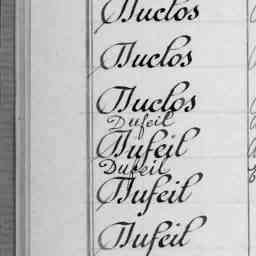 Duclos
Duclos
Duclos
Dufeil
Dufeil
Dufeil
Dufeil
Dufeil